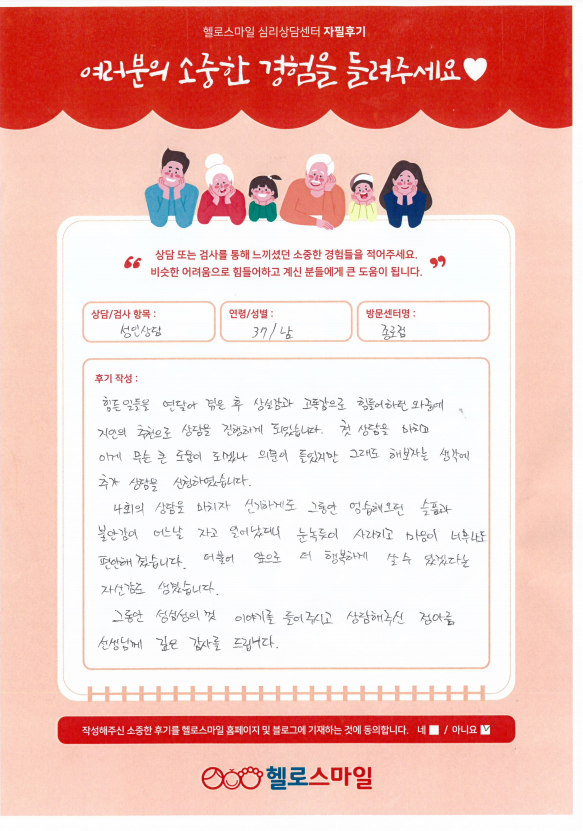 헬로스마일 심리상담센터 자필후기
여러분의 소중한 경험을 들려주세요
“ 상담 또는 검사를 통해 느끼셨던 소중한 경험들을 적어주세요.
비슷한 어려움으로 힘들어하고 계신 분들에게 큰 도움이 됩니다. ”
상담/검사 항목 :
성인상담
연령/성별 :
37/남
방문센터명 :
종로점
후기 작성 :
힘든 일들을 연달아 겪은 후 상실감과 고독감으로 힘들어하던 와중에
지인의 추천으로 상담을 진행하게 되었습니다. 첫 상담을 마치고
이게 무슨 큰 도움이 되겠나 의문이 들었지만 그래도 해보자는 생각에
추가 상담을 신청하였습니다.
4회의 상담을 마치자 신기하게도 그동안 엄습해오던 슬픔과
불안감이 어느날 자고 일어났더니 눈녹듯이 사라지고 마음이 너무나도
편안해졌습니다. 더불어 앞으로 더 행복하게 살 수 있겠다는
자신감도 생겼습니다.
그동안 성심성의껏 이야기를 들어주시고 상담해주신 정아름
선생님께 깊은 감사를 드립니다.
작성해주신 소중한 후기를 헬로스마일 홈페이지 및 블로그에 기재하는 것에 동의합니다. 네 / 아니요
헬로스마일